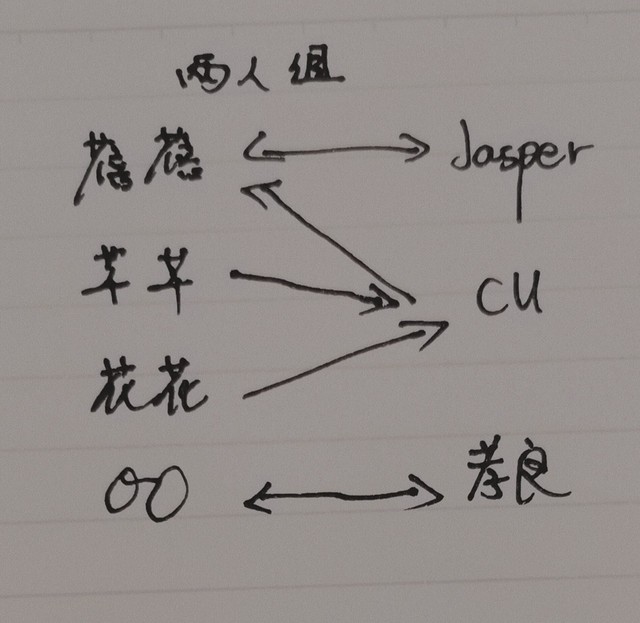 两人组
Jasper
芊芊 CU
花花
OO 孝良